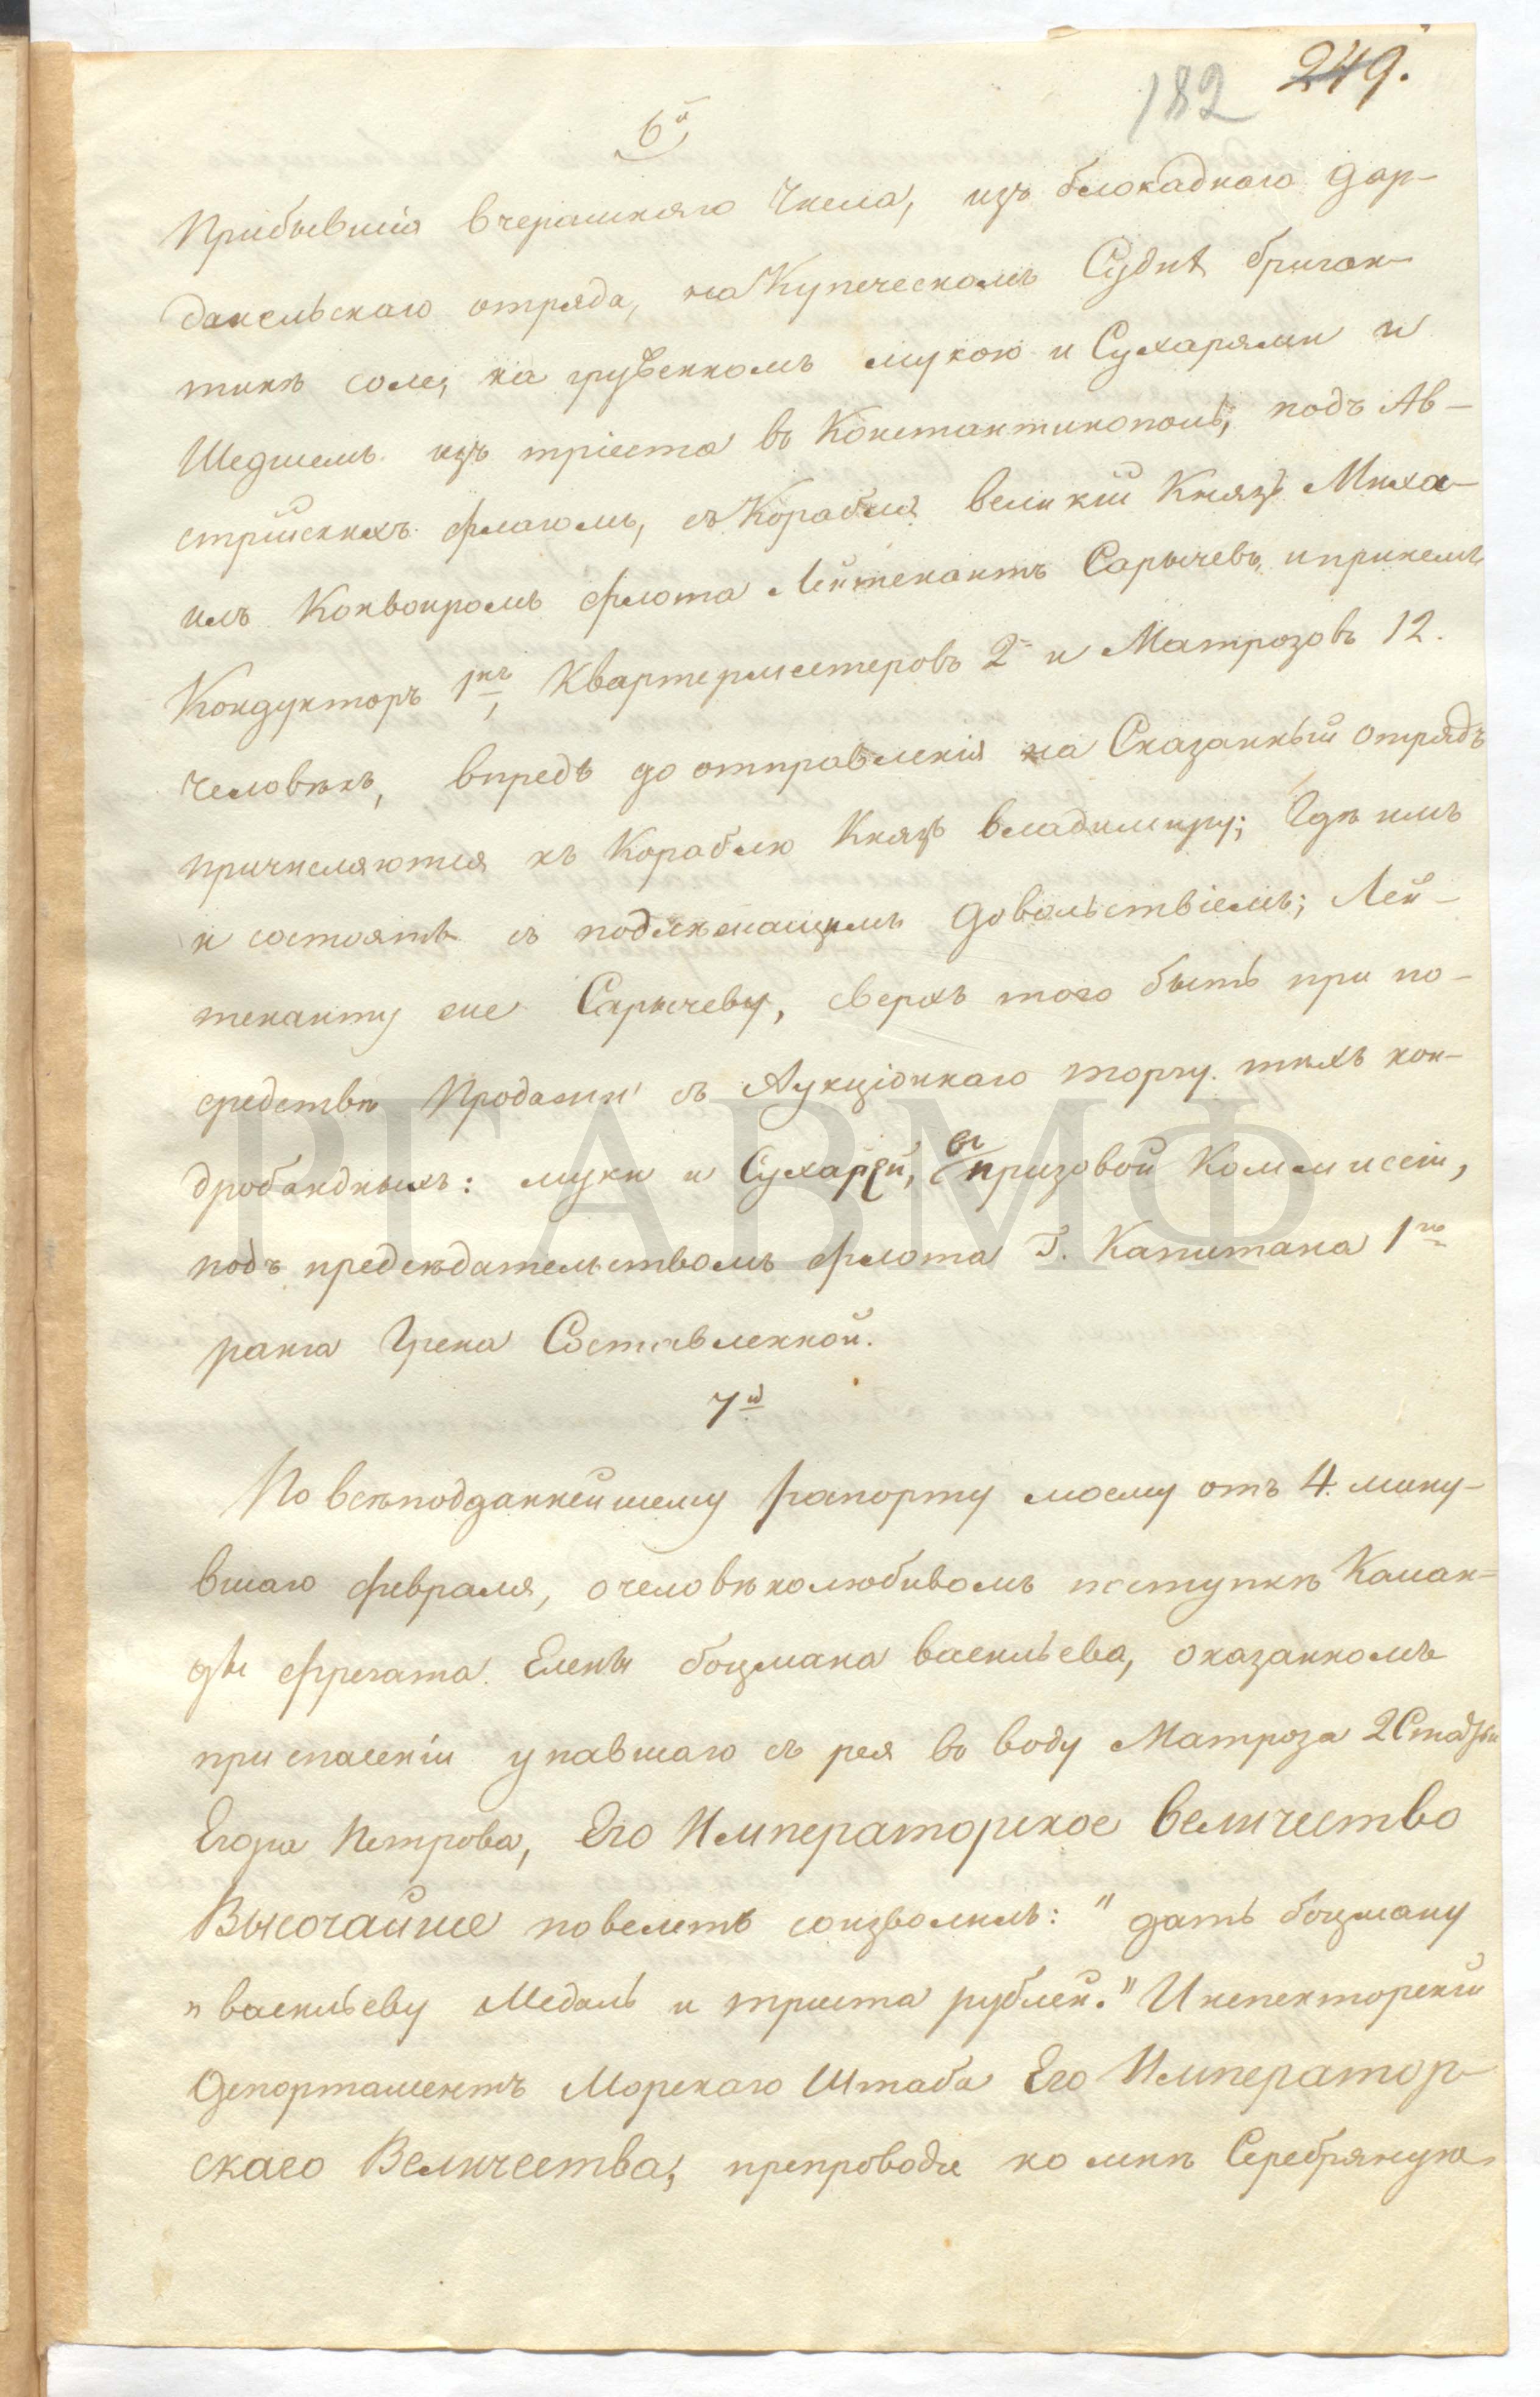 249.
182
6й
Прибывшiя вчерашняго Числа, изъ блокаднаго дар-
данельскаго отряда, на Купеческомъ Суднѣ бриган-
тинѣ соле, на груженномъ мукою и Сухарями и
Шедшемъ изъ трiеста въ Константинополь, подъ Ав-
стрiйскихъ флагомъ, съ Корабля великiй Князь Миха-
илъ Конвоиромъ флота Лейтенантъ Сарычевъ, и принемъ
Кондукторъ 1нъ, Квартермистеровъ 2 и Матрозовъ 12.
Человѣкъ, впредь до отправленiя на Сказанный отрядъ
причисляются къ Кораблю Князь владимиру; Гдѣ имъ
и состоять съ подлежащимъ довольствiемъ; Лей-
тенанту же Сарычеву, сверхъ того быть при по-
средствѣ Продажи съ Аукцiоннаго торгу тѣхъ кон-
дробандныхъ: муки и Сухарей, въ призовой Коммисiи,
подъ предсѣдательствомъ флота Г. Капитана 1го
ранга Грека Составленной.
7й
По всѣподданнейшему рапорту моему отъ 4. мину-
вшаго февраля, о человѣколюбивомъ поступкѣ Каман-
ды фрегата Елены боцмана васильева, оказанномъ
при спасенiи упавшаго съ рея въ воду Матроза 2 Статьи
Егора Петрова, Его Императорское величество
Высочайше повелеть соизволилъ: "дать боцману
"васильеву Медаль и триста рублей." Инспекторскiй
Департаментъ Морскаго Штаба Его Император-
скаго Величества, препроводя ко мнѣ Серебряную
РГАВМФ